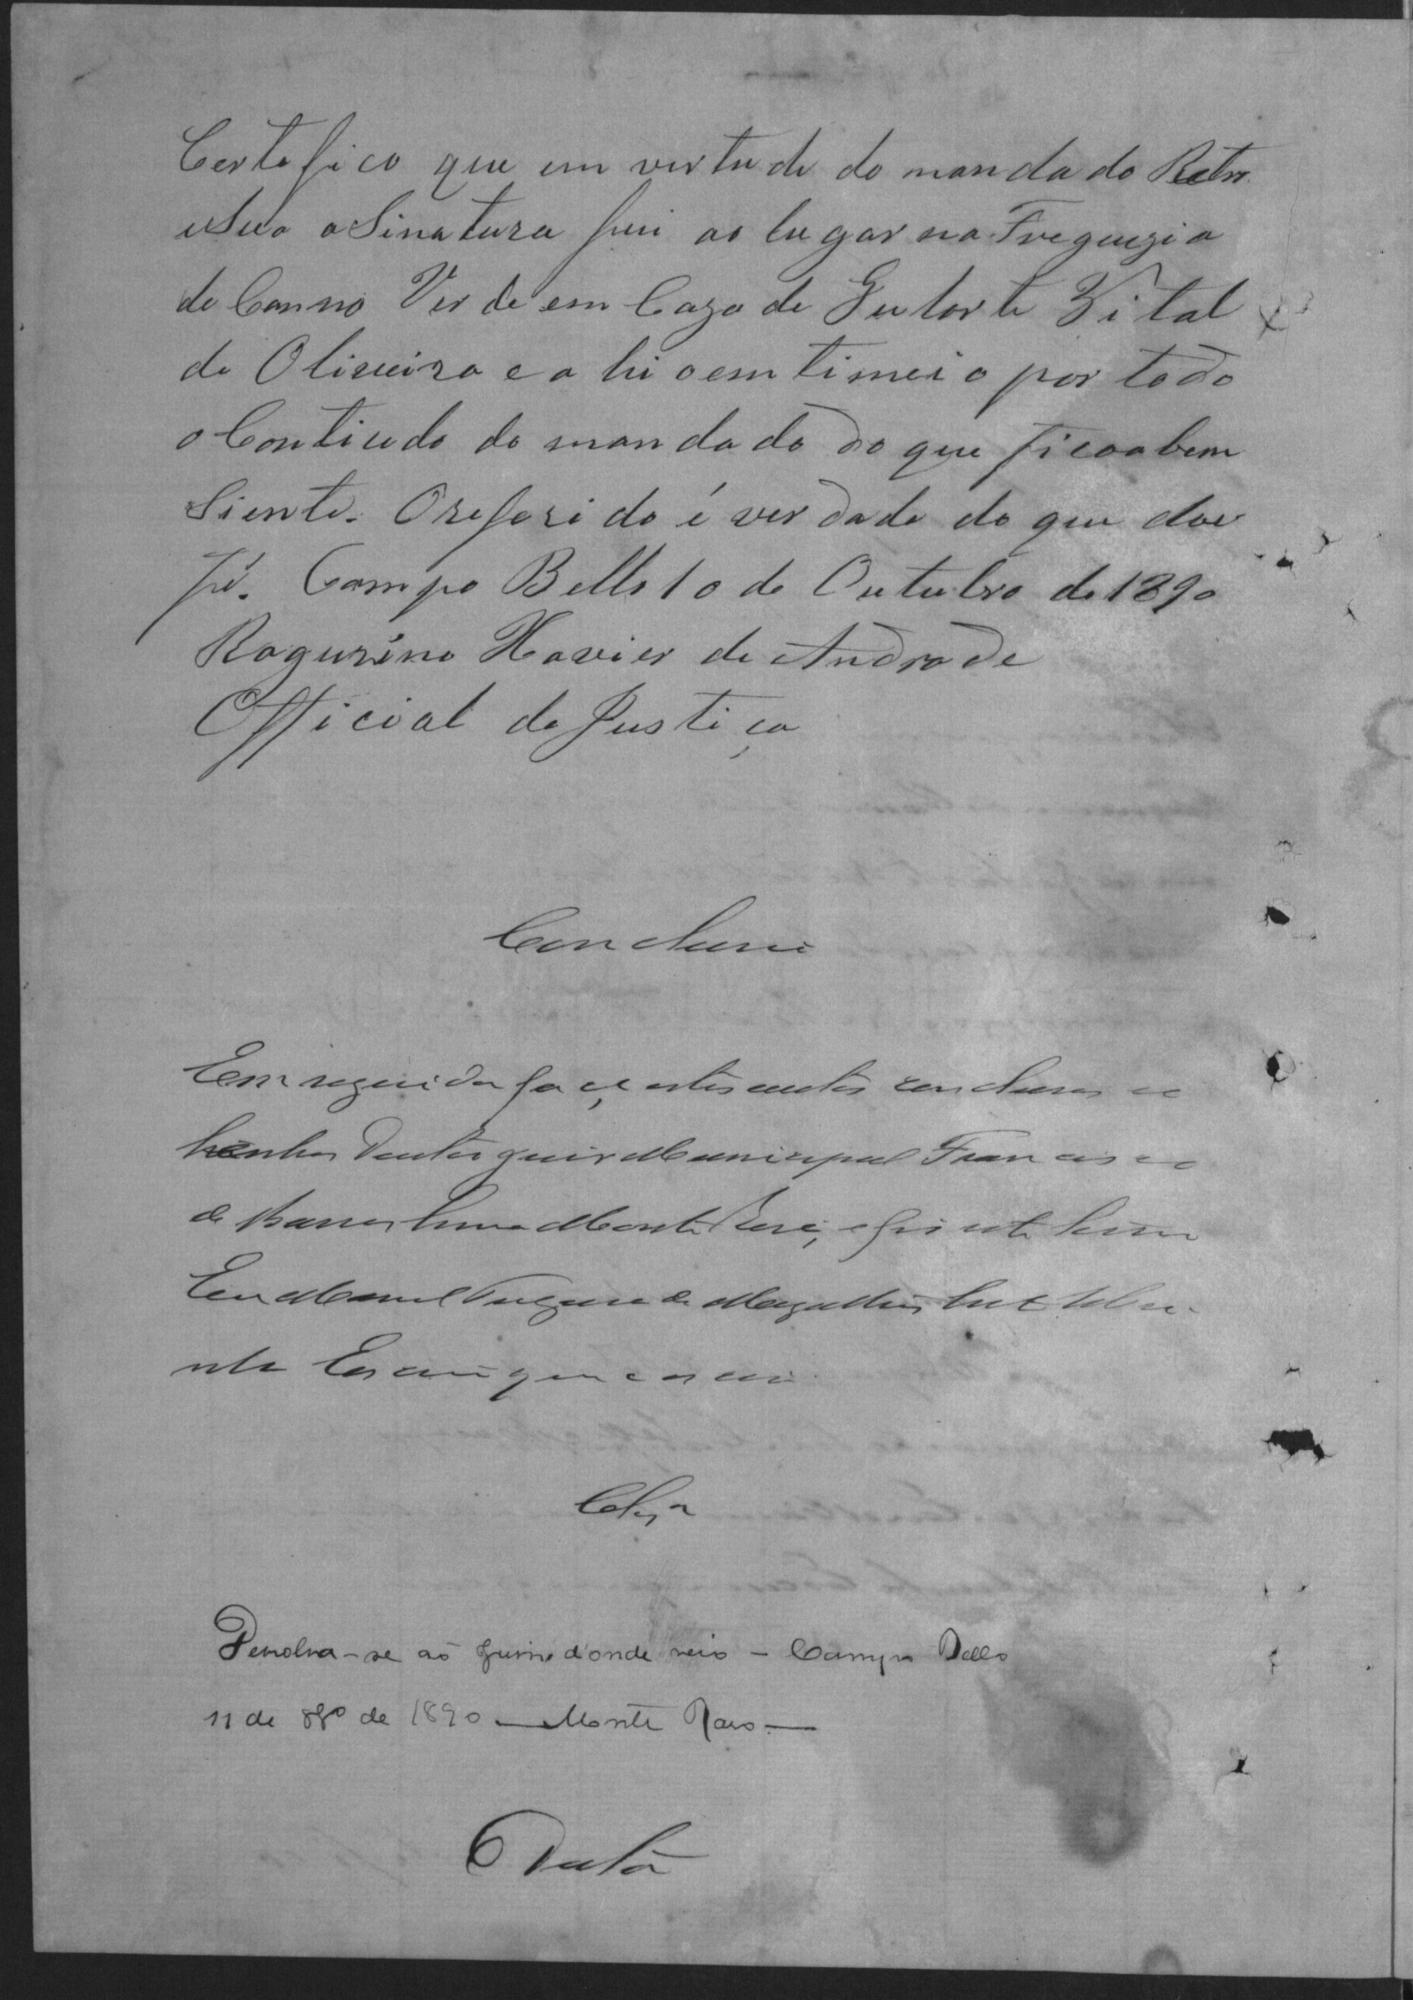 Certefico que em vertude do mandado Retro
e Sua aSinatura fui ao lugar na Freguezia
de Canno Verde em Caza de
Vital
de Oliveira e ahi o emtimei o por todo
o Contiudo do mandado do que ficoa bem
Siente. O referido é verdade do que doe
fé. Campo Bello 10 de Outubro de 1890
Xavier de Andrade
Official de Justiça
Concluzão
Em seguida faço estes autos conclusos ao
Senhor Doutor Juiz Municipal Francisco
de Barros Lima Monte Raso, e fiz este termo
Eu Manoel de Magalhães
Escrivão que escrevi
Clsa
Devolva-se ao Juizo d'onde veio - Campo Bello
11 de 8bro de 1890 — Monte Raso —
Data